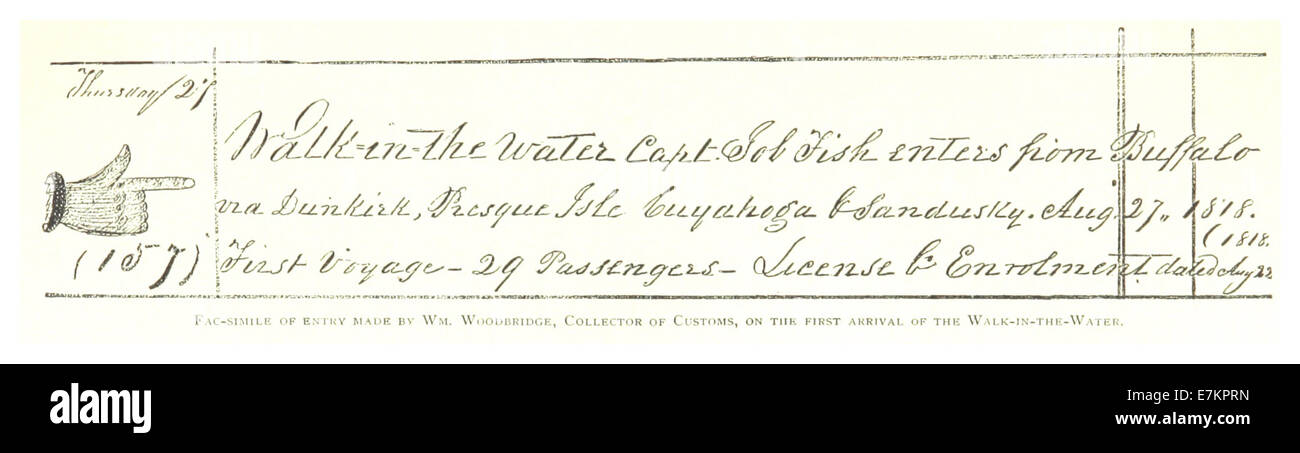 Thursday 27
Walk-in-the Water Capt. Job Fish enters from Buffalo
via Dunkirk, Presque Isle Cuyahoga & Sandusky. Aug. 27„ 1818.
(157) First Voyage - 29 Passengers - License & Enrolment dated Aug 22
(1818.
FAC-SIMILE OF ENTRY MADE BY WM. WOODBRIDGE, COLLECTOR OF CUSTOMS, ON THE FIRST ARRIVAL OF THE WALK-IN-THE-WATER.
alamy stock photo
E7KPRN
www.alamy.com